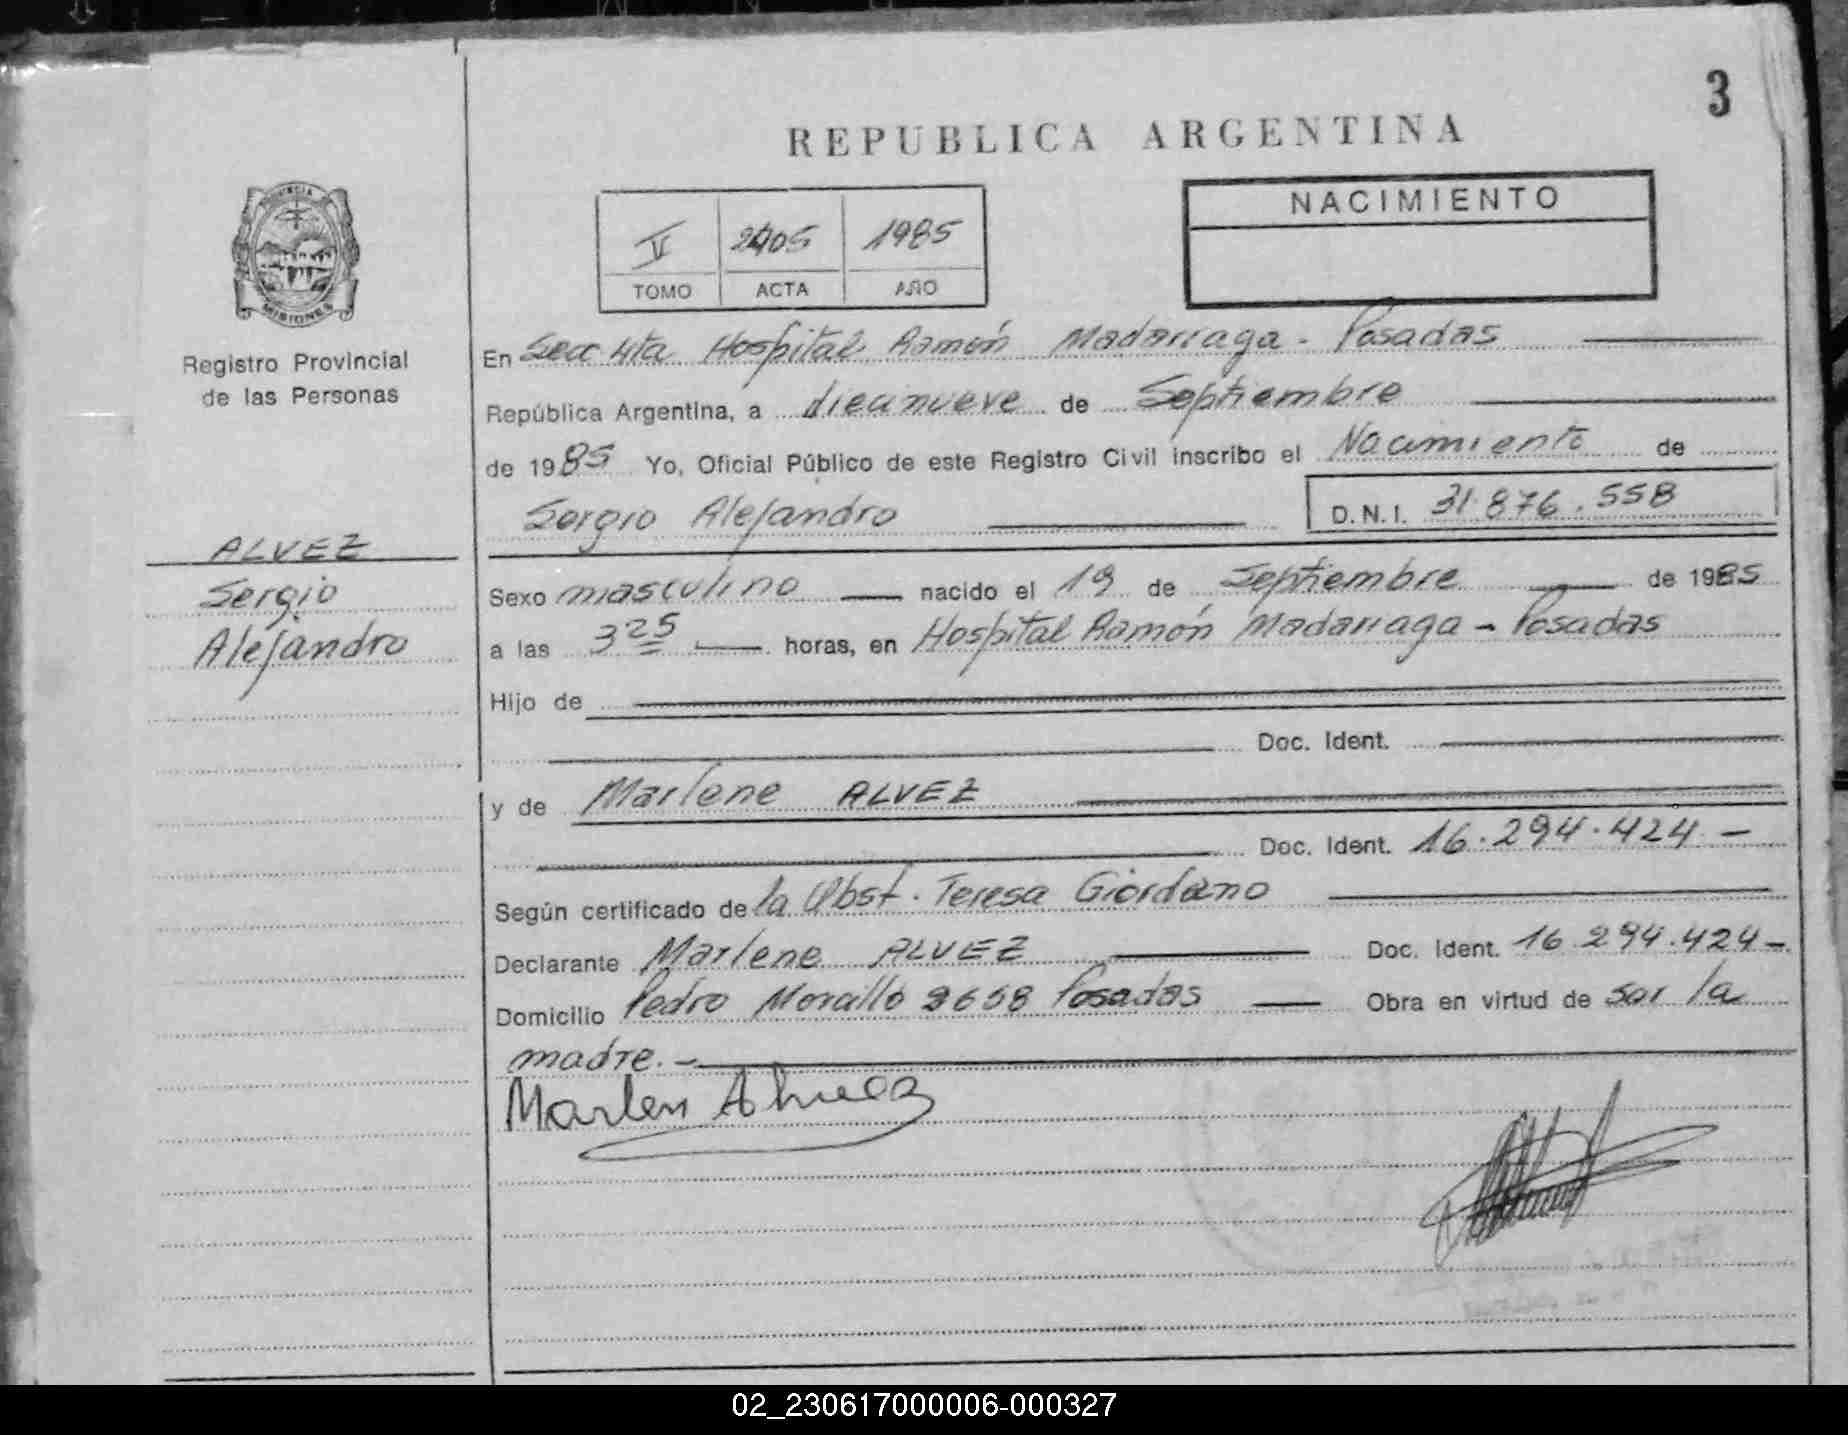 3
REPUBLICA ARGENTINA
NACIMIENTO
V 2405 1985
TOMO ACTA AÑO
PROVINCIA
MISIONES
Registro Provincial
de las Personas
ALVEZ
Sergio
Alejandro
En Secc 4ta Hospital Ramón Madariaga - Posadas
República Argentina, a diecinueve de Septiembre
de 1985 Yo, Oficial Público de este Registro Civil inscribo el Nacimiento de
Sergio Alejandro D.N.I. 31.876.558
Sexo masculino nacido el 19 de Septiembre de 1985
a las 3 25 horas, en Hospital Ramón Madariaga - Posadas
Hijo de
Doc. Ident.
y de Marlene ALVEZ
Doc. Ident. 16.294.424 -
Según certificado de la Obst. Teresa Giordano
Declarante Marlene ALVEZ Doc. Ident. 16.294.424 -
Domicilio Pedro Morcillo 3658 Posadas Obra en virtud de ser la
madre. -
Marlen Alveez
02_230617000006-000327